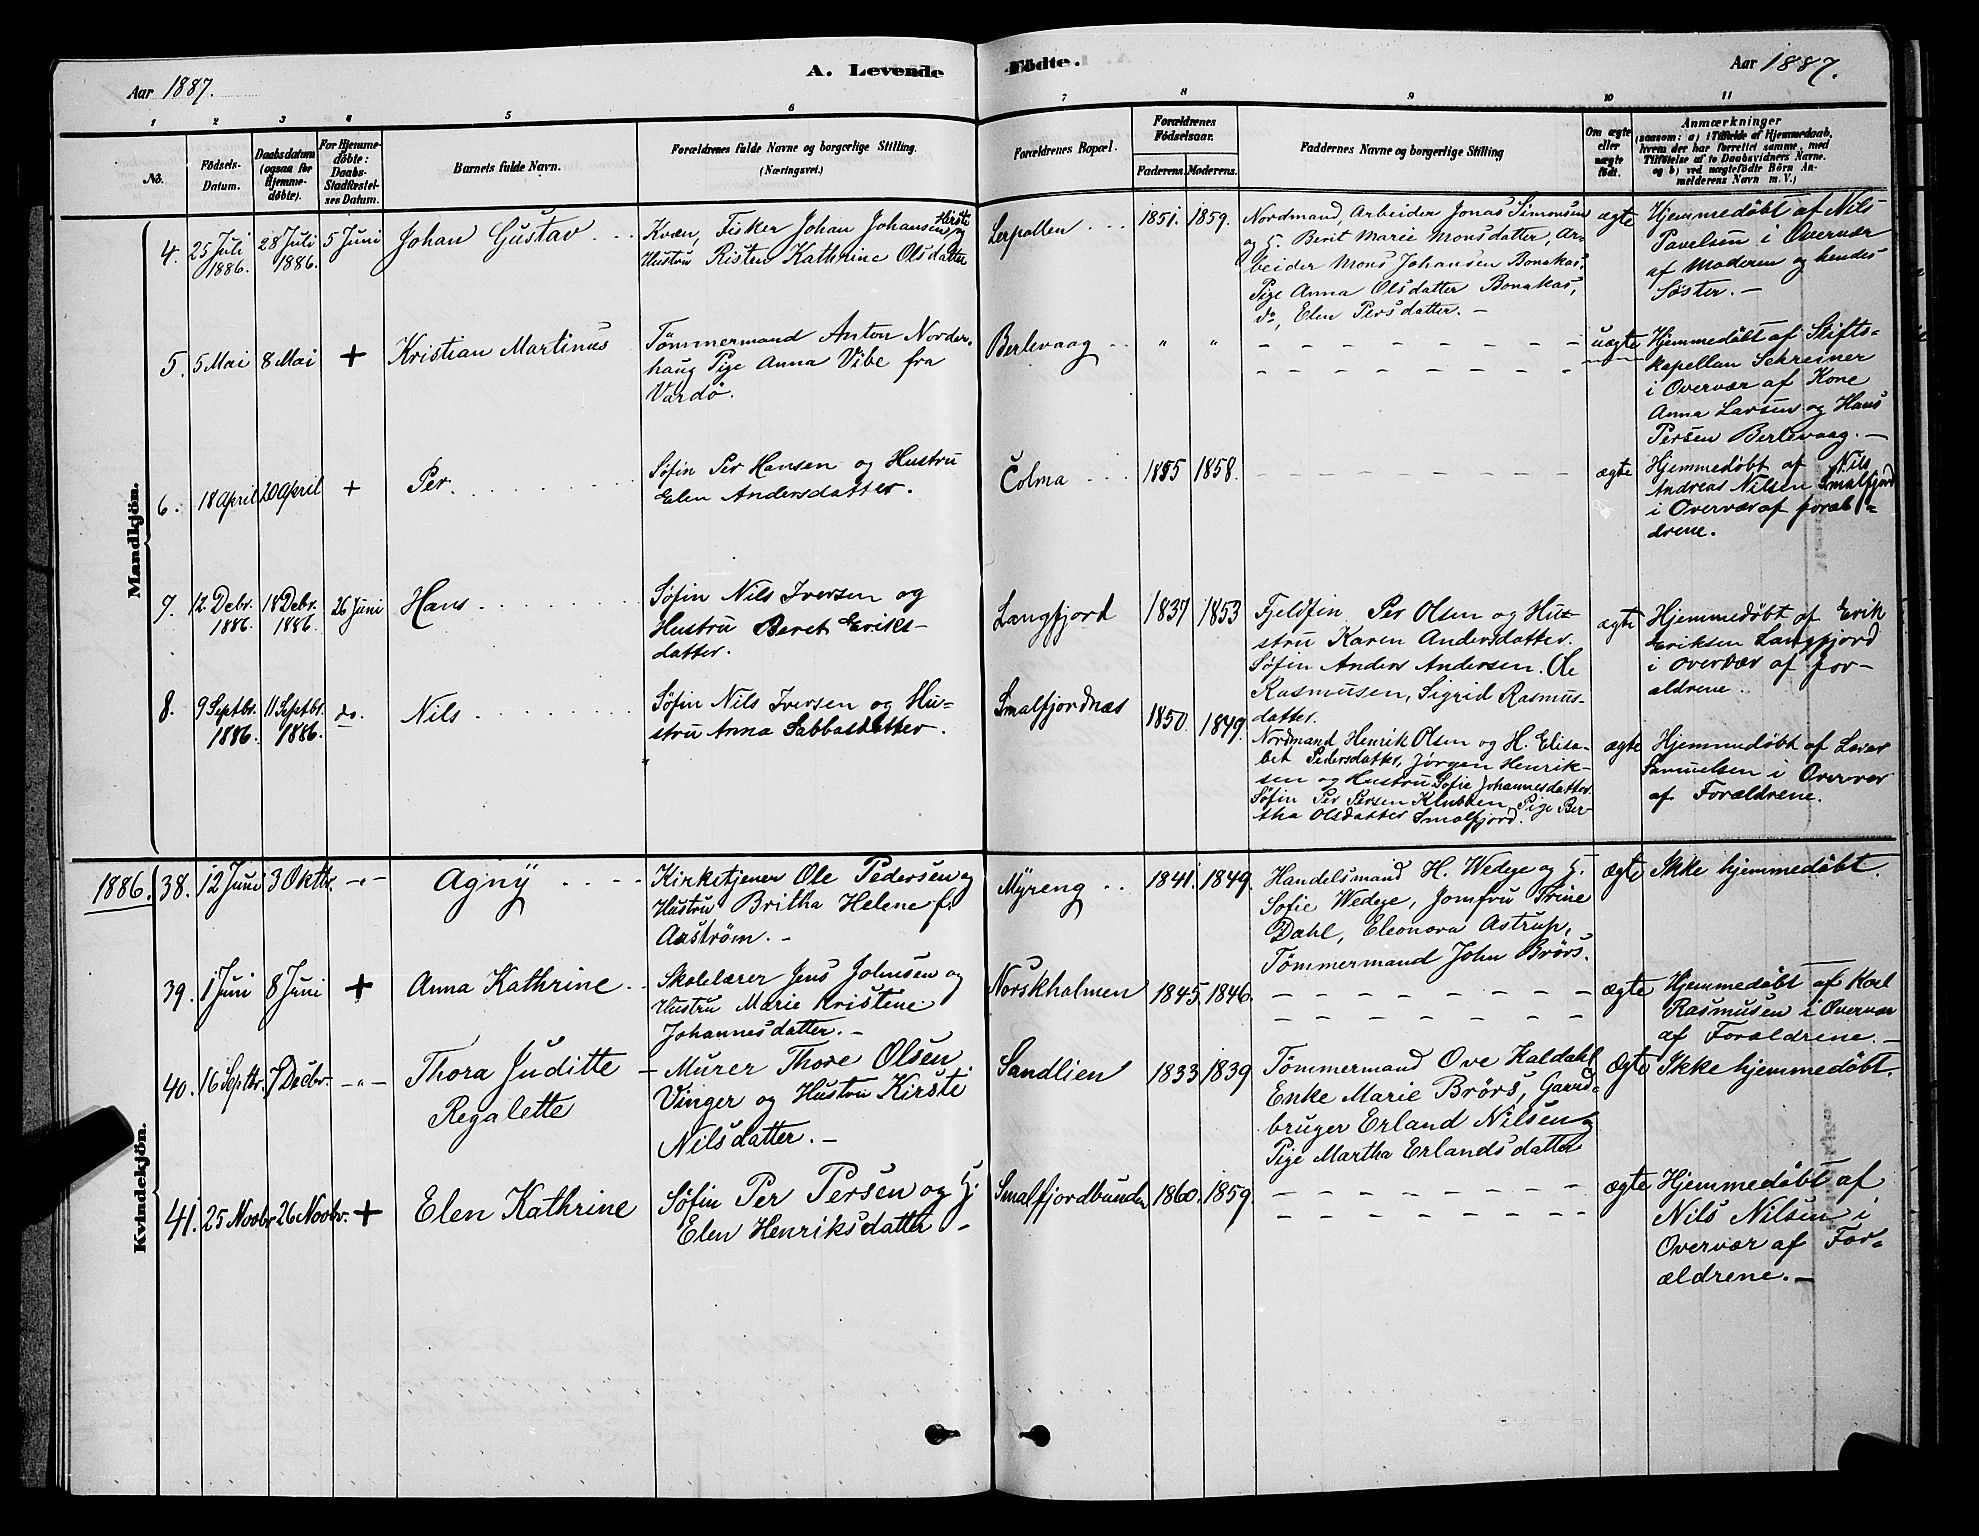 Aar 1887.
A. Levende Fødte.
Aar 1887.
1 2 3 4 5 6 7 8 9 10 11
No.
Fødsels-
Datum.
Daabsdatum
(ogsaa for
Hjemme-
døbte).
For Hjemme-
døbte:
Daabs-
Stadfæstel-
ses Datum.
Barnets fulde Navn.
Forældrenes fulde Navne og borgerlige Stilling.
(Næringsvei.)
Forældrenes Bopæl.
Forældrenes
Fødselsaar.
Faderens. Moderens.
Faddernes Navne og borgerlige Stilling
Om ægte
eller
uægte
født.
Anmærkninger
(saasom: a) i Tilfælde af Hjemmedaab,
hvem der har forrettet samme, med
Tilføielse af to Daabsvidners Navne.
og b) ved uægtefødte Børn An-
melderens Navn m. V.)
Mandkjøn.
4. 25 Juli
1886.
28 Juli
1886.
5 Juni
Johan Gustav
Kvæn, Fisker Johan Johansen Hirsti og
Hustru Risten Kathrine Olsdatter
Lerpollen
1851. 1859.
Nordmand, Arbeider Jonas Simonsen
og H. Berit Marie Monsdatter, Ar-
beider Mons Johansen Bonakas,
Pige Anna Olsdatter Bonakas,
do, Elen Persdatter. –
ægte
Hjemmedøbt af Nils
Pavelsen i Overvær
af Moderen og hendes
Søster. –
5. 5 Mai 8 Mai +
Kristian Martinus
Tømmermand Anton Norder-
haug Pige Anna Vibe fra
Vardø.
Berlevaag
" "
– – – – – – – –
– – – – – – – –
uægte
Hjemmedøbt af Stifts-
kapellan Schreiner
i Overvær af Kone
Anna Larsen og Hans
Persen Berlevaag. –
6. 18 April 20 April +
Per.
Søfin Per Hansen og Hustru
Elen Andersdatter.
Čolma
1855 1858.
– – – – – – – –
ægte
Hjemmedøbt af Nils
Andreas Nilsen Smalfjord
i Overvær af foræl-
drene.
7. 12. Debr.
1886.
18 Debr.
1886.
26 Juni
Hans
Søfin Nils Iversen og
Hustru Beret Eriks-
datter.
Langfjord
1837 1853
Fjeldfin Per Olsen og Hu-
stru Karen Andersdatter.
Søfin Anders Andersen. Ole
Rasmusen, Sigrid Rasmus-
datter.
ægte
Hjemmedøbt af Erik
Eriksen Langfjord
i Overvær af for-
ældrene.
8. 9 Septbr.
1886.
11 Septbr.
1886.
do.
Nils
Søfin Nils Iversen og Hu-
stru Anna Sabbasdatter.
Smalfjordnæs
1850. 1849.
Nordmand Henrik Olsen og H. Elisa-
bet Pedersdatter, Jørgen Henrik-
sen og Hustru Sofie Johannesdatter.
Søfin Per Persen Klubben, Pige Ber-
tha Olsdatter Smalfjord.
ægte
Hjemmedøbt af
Samuelsen i Overvær
af Forældrene.
Kvindekjøn.
1886. 38. 12 Juni 3 Oktbr. –"–
Agny
Kirketjener Ole Pedersen og
Hustru Britha Helene f.
Aaström. –
Myreng
1841. 1849.
Handelsmand H. Wedege og H.
Sofie Wedege, Jomfru Trine
Dahl, Eleonora Astrup,
Tømmermand John Brörs.
ægte
Ikke hjemmedøbt.
39. 1 Juni 8 Juni +
Anna Kathrine
Skolelærer Jens Johnsen og
Hustru Marie Kristene
Johannesdatter. –
Norskholmen
1845. 1846.
– – – – – – – –
– – – – – – – –
ægte
Hjemmedøbt af Karl
Rasmusen i Overvær
af Forældrene. –
40. 16 Septbr. 7 Decbr. –"–
Thora Juditte
Regalette
– Murer Thore Olsen
Vinger og Hustru Kirsti
Nilsdatter. –
Sandlien
1833 1839
Tømmermand Ove Kaldahl
Enke Marie Brörs, Gaard-
bruger Erland Nilsen og
Pige Martha Erlandsdatter
Ægte
Ikke hjemmedøbt.
41. 25 Novbr 26 Novbr. +
Elen Kathrine
Søfin Per Persen og H.
Elen Henriksdatter –
Smalfjordbunden
1860. 1859.
– – – – – – – –
– – – – – – – –
ægte
Hjemmedøbt af
Nils Nilsen i
Overvær af For-
ældrene. –